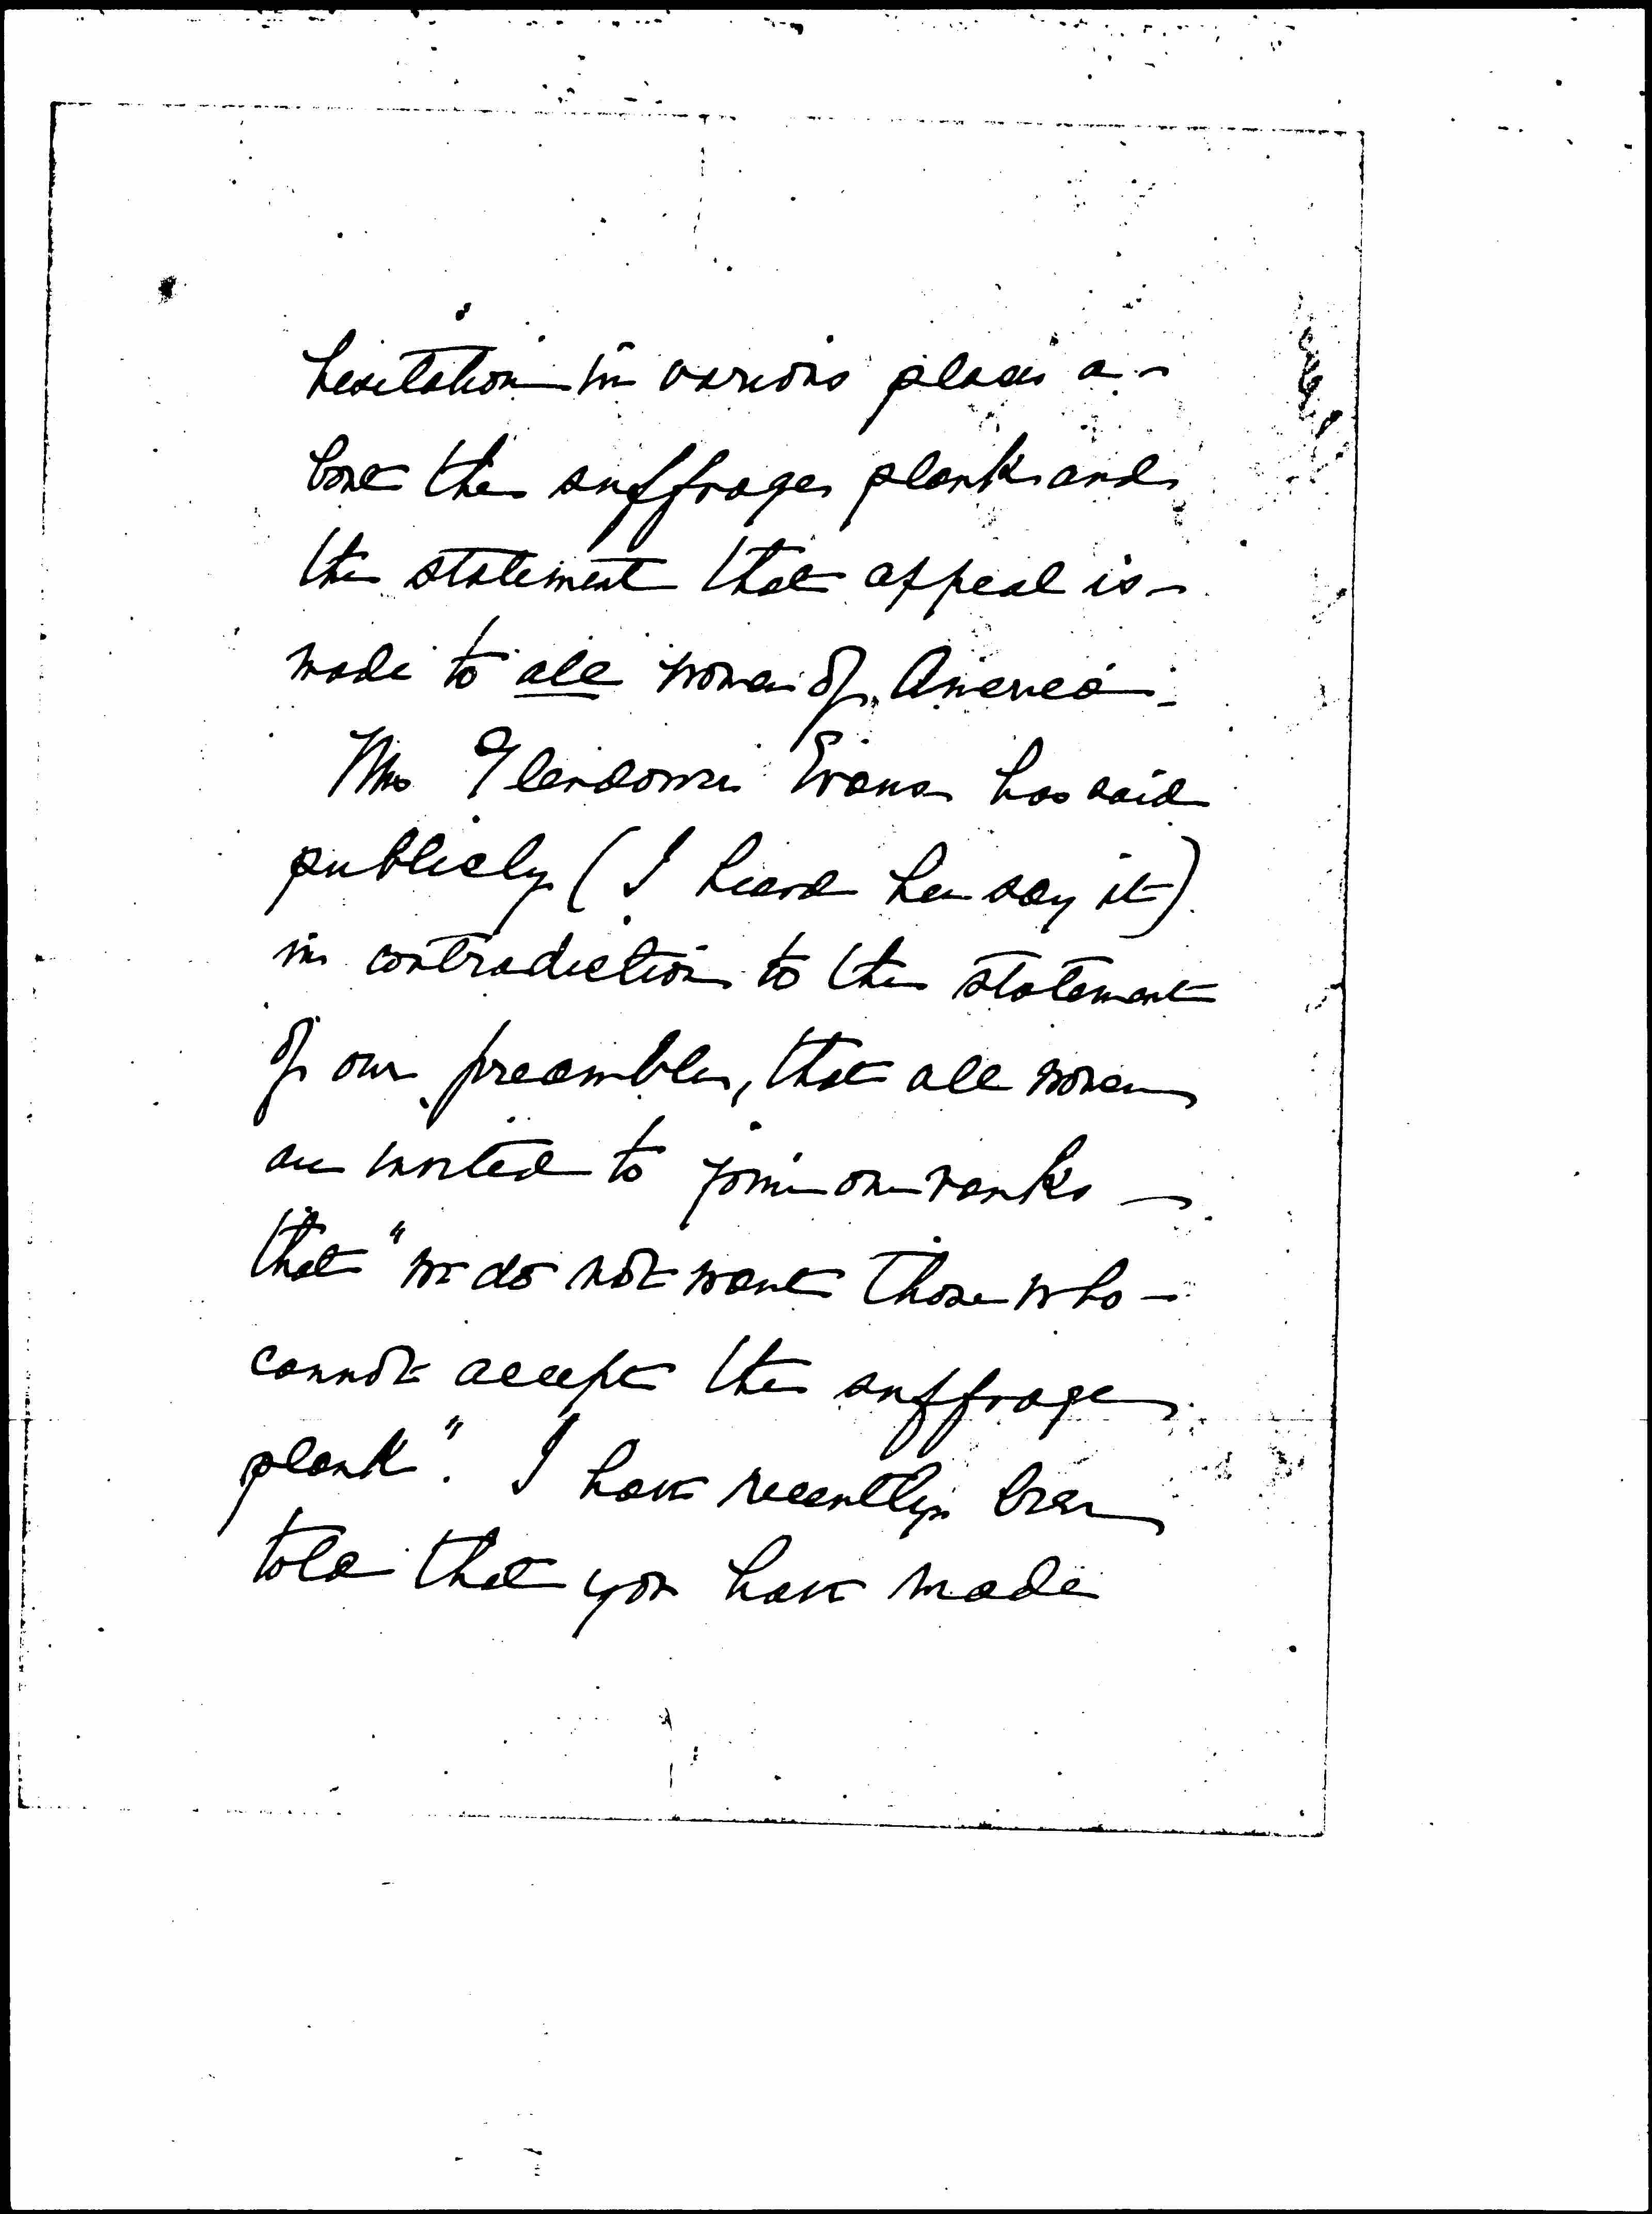 hesitation in various places a-
bout the suffrage plank and
the statement that appeal is
made to all women of America.
Mrs Glendower Evans has said
publicly (I heard her say it)
in contradiction to the statement
of our preamble, that all women
are invited to join our ranks —
that "we do not want those who
cannot accept the suffrage
plank". I have recently been
told that you have made